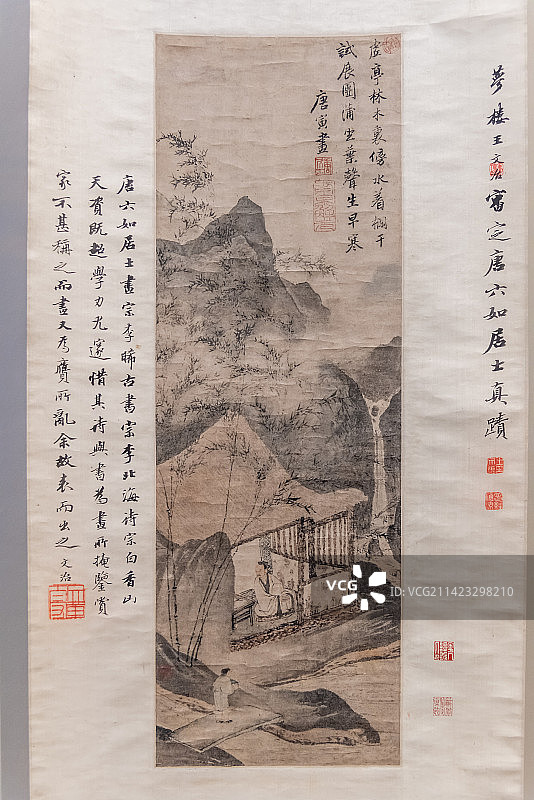 夢樓王文治審定唐六如居士真蹟
虛亭林木裏傍水着欄干
試展團蒲坐葉聲生早寒
唐寅畫
唐六如居士畫宗李晞古書宗李北海詩宗白香山
天資既超學力尤邃惜其詩與書為畫所掩鑒賞
家不甚稱之而畫又為贋所亂余故表而出之 文治
VCG
VCG211423298210